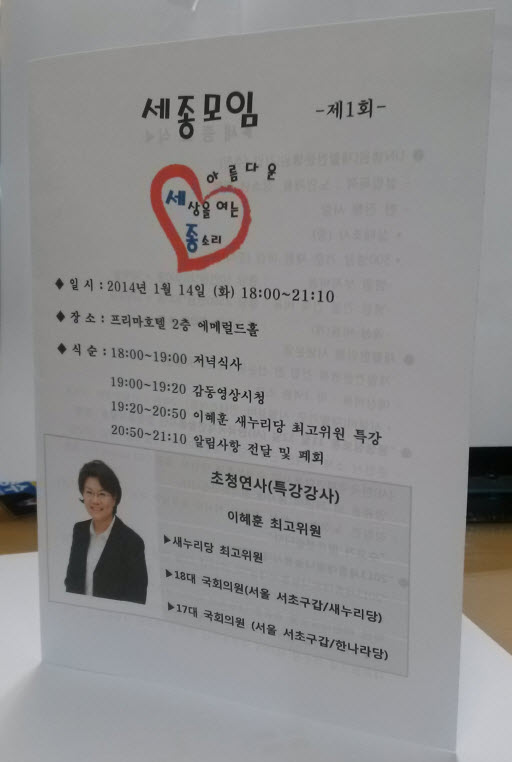 세종모임 -제1회-
아름다운
세상을 여는
종소리
◆ 일 시 : 2014년 1월 14일 (화) 18:00~21:10
◆ 장 소 : 프리마호텔 2층 에메럴드홀
◆ 식 순 : 18:00~19:00 저녁식사
19:00~19:20 감동영상시청
19:20~20:50 이혜훈 새누리당 최고위원 특강
20:50~21:10 알림사항 전달 및 폐회
초청연사(특강강사)
이혜훈 최고위원
▶새누리당 최고위원
▶18대 국회의원(서울 서초구갑/새누리당)
▶17대 국회의원 (서울 서초구갑/한나라당)